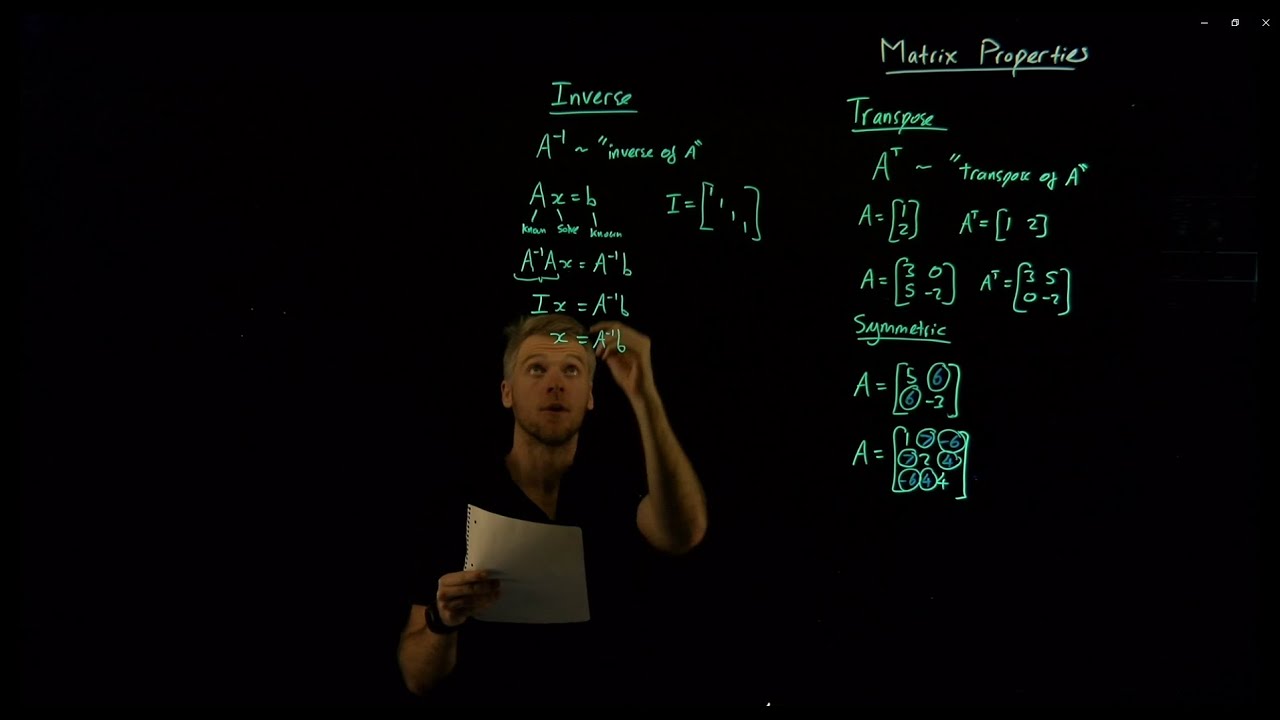 Matrix Properties
Inverse
A⁻¹ ~ "inverse of A"
Ax = b
known solve known
I = [1 1 1 1]
A⁻¹Ax = A⁻¹b
Ix = A⁻¹b
x = A⁻¹b
Transpose
Aᵀ ~ "transpose of A"
A = [1
2]
Aᵀ = [1 2]
A = [3 0
5 -2]
Aᵀ = [3 5
0 -2]
Symmetric
A = [5 6
6 -3]
A = [1 7 -6
7 2 4
-6 4 4]